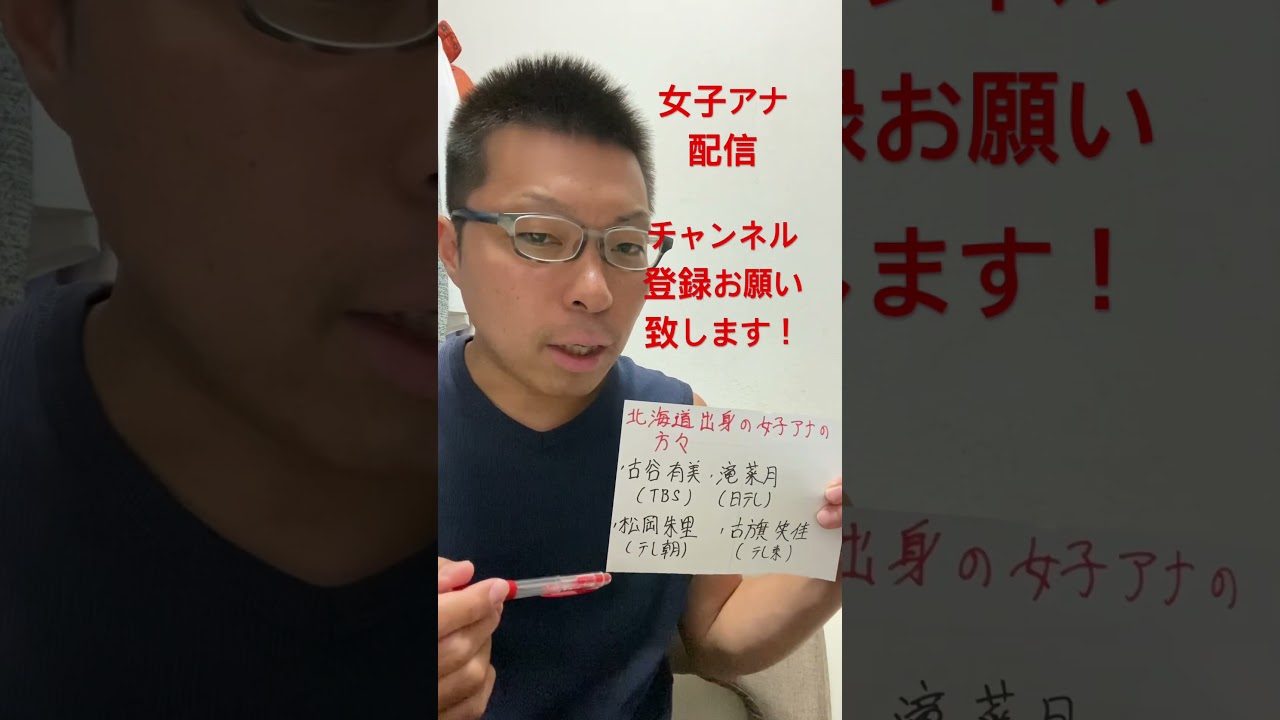 女子アナ
配信
チャンネル
登録お願い
致します！
北海道出身の女子アナの
方々
・古谷有美 ・滝菜月
(TBS) (日テレ)
・松岡朱里 ・古旗笑佳
(テレ朝) (テレ東)
録お願い
します！
出身の女子アナの
滝菜月